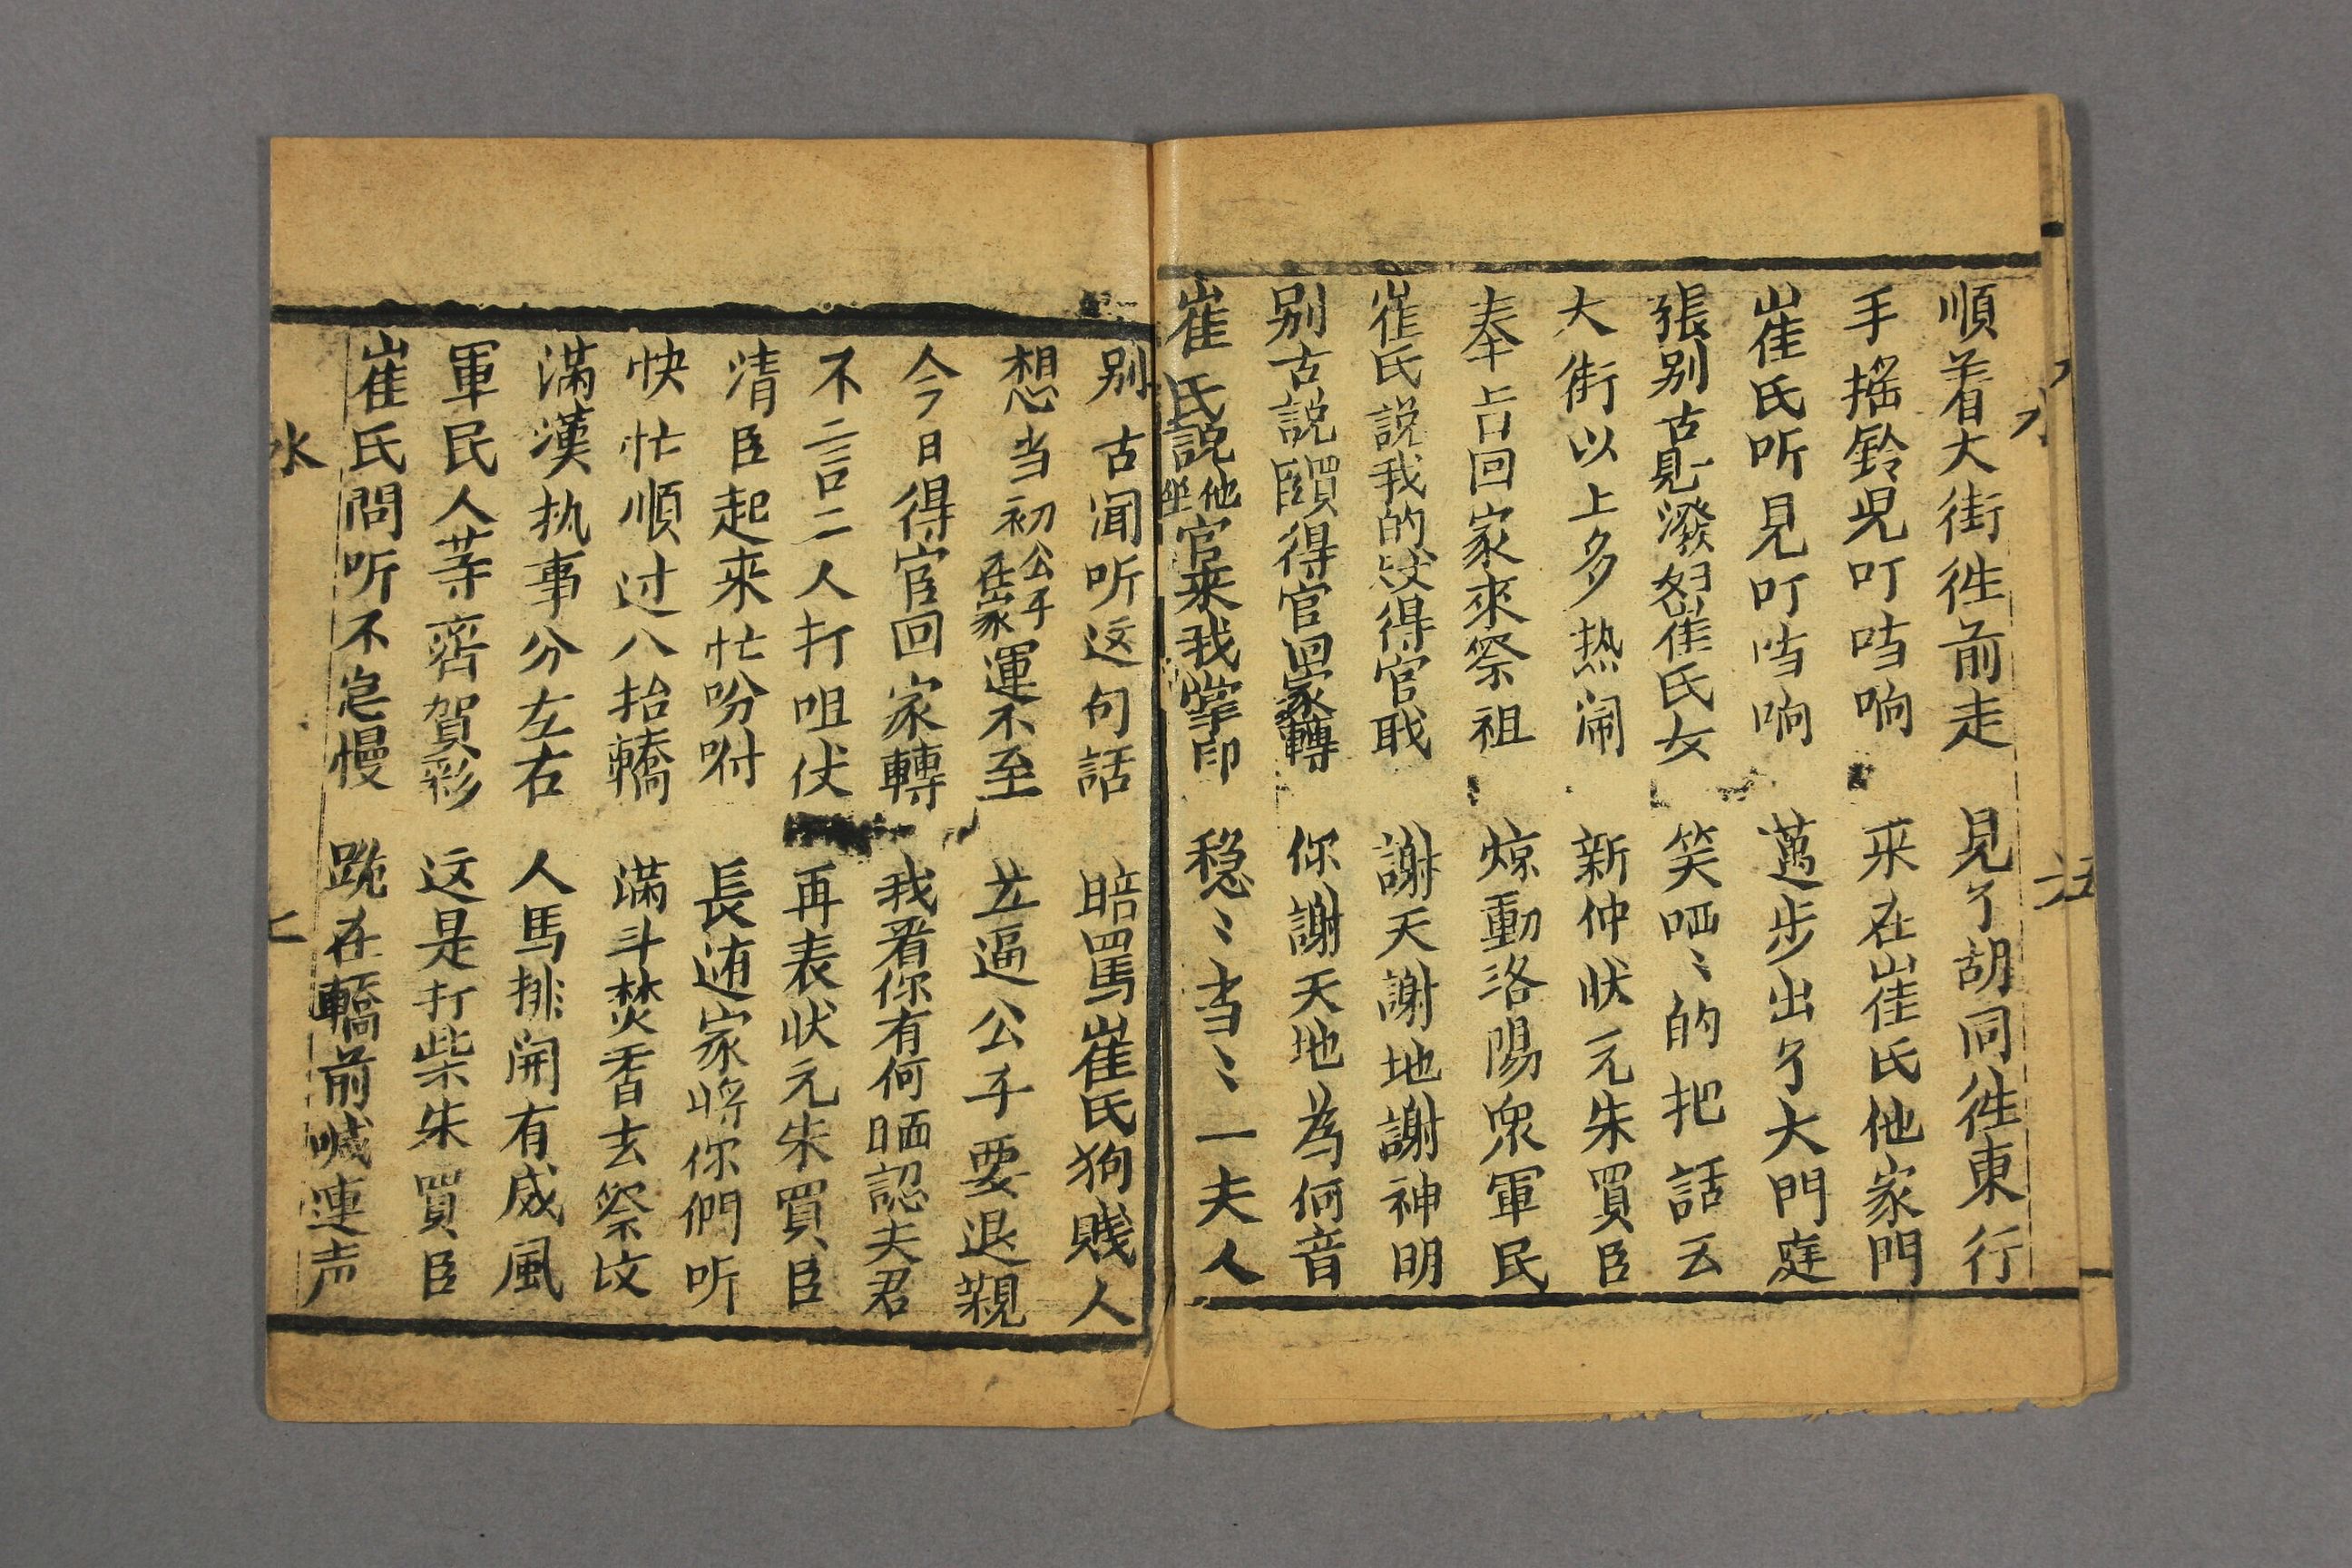 順着大街徃前走 見了胡同徃東行
手搖鈴児叮咭响 来在崔氏他家門
崔氏听見叮咭响 邁步出了大門庭
張别古見潑婦崔氏女 笑哂〻的把話云
大街以上多热闹 新仲状元朱買臣
奉旨回家來祭祖 惊動洛陽衆軍民
崔氏説我的 得官戢 謝天謝地謝神明
别古説買臣得官回家轉 你謝天地為何音
崔氏説他坐官来我掌印 稳〻当〻一夫人
别古闻听这句話 暗罵崔氏狗賤人
想当初公子在家運不至 苦逼公子要退親
今日得官回家轉 我看你有何面認夫君
不言二人打咀仗 再表状元朱買臣
清臣起來忙吩咐 長随家将你們听
快忙順过八抬轎 满斗焚香去祭坟
满漢执事分左右 人馬排開有威風
軍民人等齊賀彩 这是打柴朱買臣
崔氏問听不怠慢 跪在轎前喊連声
水